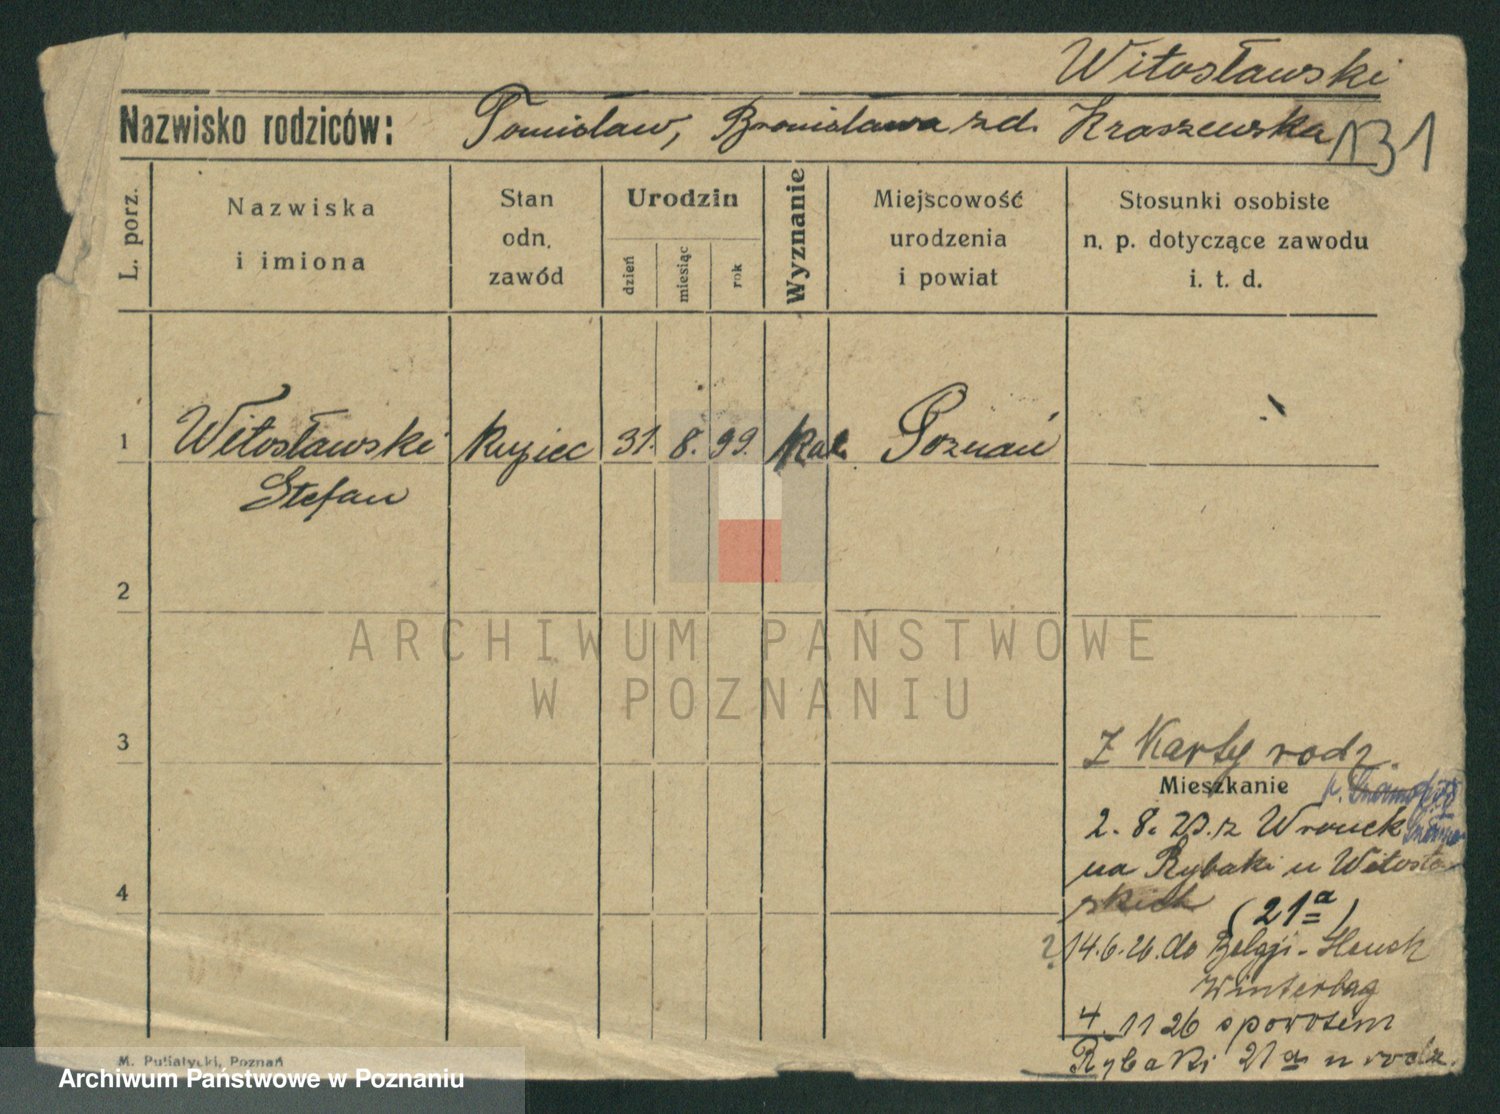 Witosławski
Nazwisko rodziców: Tomisław, Bronisława z d. Kraszewska 131
L. porz.
Nazwiska
i imiona
Stan
odn.
zawód
Urodzin
dzień
miesiąc
rok
Wyznanie
Miejscowość
urodzenia
i powiat
Stosunki osobiste
n. p. dotyczące zawodu
i. t. d.
1 Witosławski kupiec 31. 8. 99. kat. Poznań
Stefan
2
ARCHIWUM PAŃSTWOWE
W POZNANIU
3
Z Karty rodz.
Mieszkanie
2. 8. 23. z Wronek
na Rybaki u Witosła
skich (21a)
4
? 14.6.26. do Belgji -
Winterlag
4. 11 26 z powrotem
Rybaki 21a u rodz.
M. Putiatycki, Poznań
Archiwum Państwowe w Poznaniu